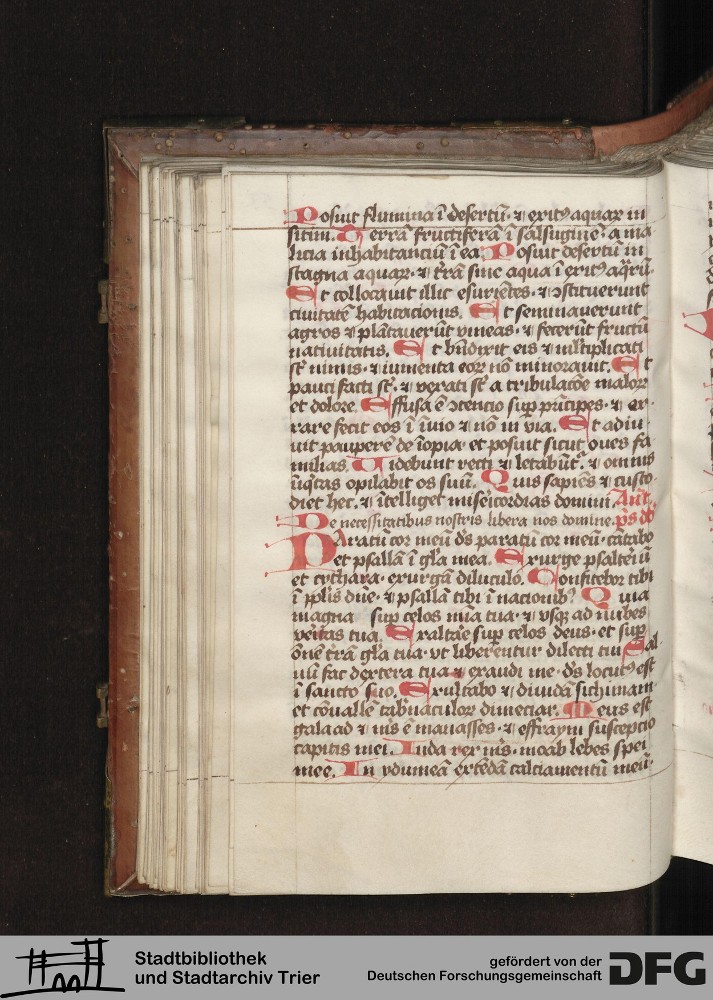 Posuit flumina ī desertū · ⁊ exitꝰ aquaꝝ in
sitim. Terrā fructiferā ī salsuginē · a ma
licia inhabitanciū ī ea. Posuit desertū in
stagna aquaꝝ · ⁊ t̄rā sine aqua ī exitꝰ aq̄rū.
Et collocauit illic esuriētes · ⁊ ꝯstituerunt
ciuitatē habitacionis. Et seminauerunt
agros ⁊ plātauerūt vineas · ⁊ fecerūt fructū
natiuitatis. Et bn̄dixit eis ⁊ ml̄tiplicati
st̄ nimis · ⁊ iumenta eoꝝ nō minorauit. Et
pauci facti st̄ · ⁊ vexati st̄ a tribulacōe maloꝝ
et dolore. Effusa ē ꝯtencio sup̄ prīcipes · ⁊ er-
rare fecit eos ī īuio ⁊ nō in via. Et adiu
uit pauperē de īopia · et posuit sicut oues fa
milias. Uidebunt recti ⁊ letabūt᷑ · ⁊ omnis
īiq̄tas opilabit os suū. Quis sapiēs ⁊ custo
diet hec · ⁊ ītelliget misēicordias domini. Ant̄.
De necessitatibus nostris libera nos domine. ps̄ dd̄
Paratū cor meū ds̄ paratū cor meū · cātabo
et psallā ī gl̄a mea. Exurge psaltēiū
et cythara · exurgā diluculo. Confitebor tibi
ī ppl̄is dn̄e · ⁊ psallā tibi ī nacionibꝰ. Quia
magna sup̄ celos mīa tua · ⁊ vsq̄ ad nubes
veritas tua. Exaltāe sup̄ celos deus · et sup̄
ōnē t̄rā gl̄a tua · vt liberentur dilecti tui. Sal
uū fac dextera tua ⁊ exaudi me · ds̄ locutꝰ est
ī sancto suo. Exultabo ⁊ diuidā sichimam
et cōuallē tab̄naculoꝝ dimeciar. Meus est
galaad ⁊ m̄s ē manasses · ⁊ effraym suscepcio
capitis mei. Iuda rex m̄s · moab lebes spei
mee. In ydumeā extēdā calciamentū meū ·
Stadtbibliothek
und Stadtarchiv Trier
gefördert von der
Deutschen Forschungsgemeinschaft
DFG